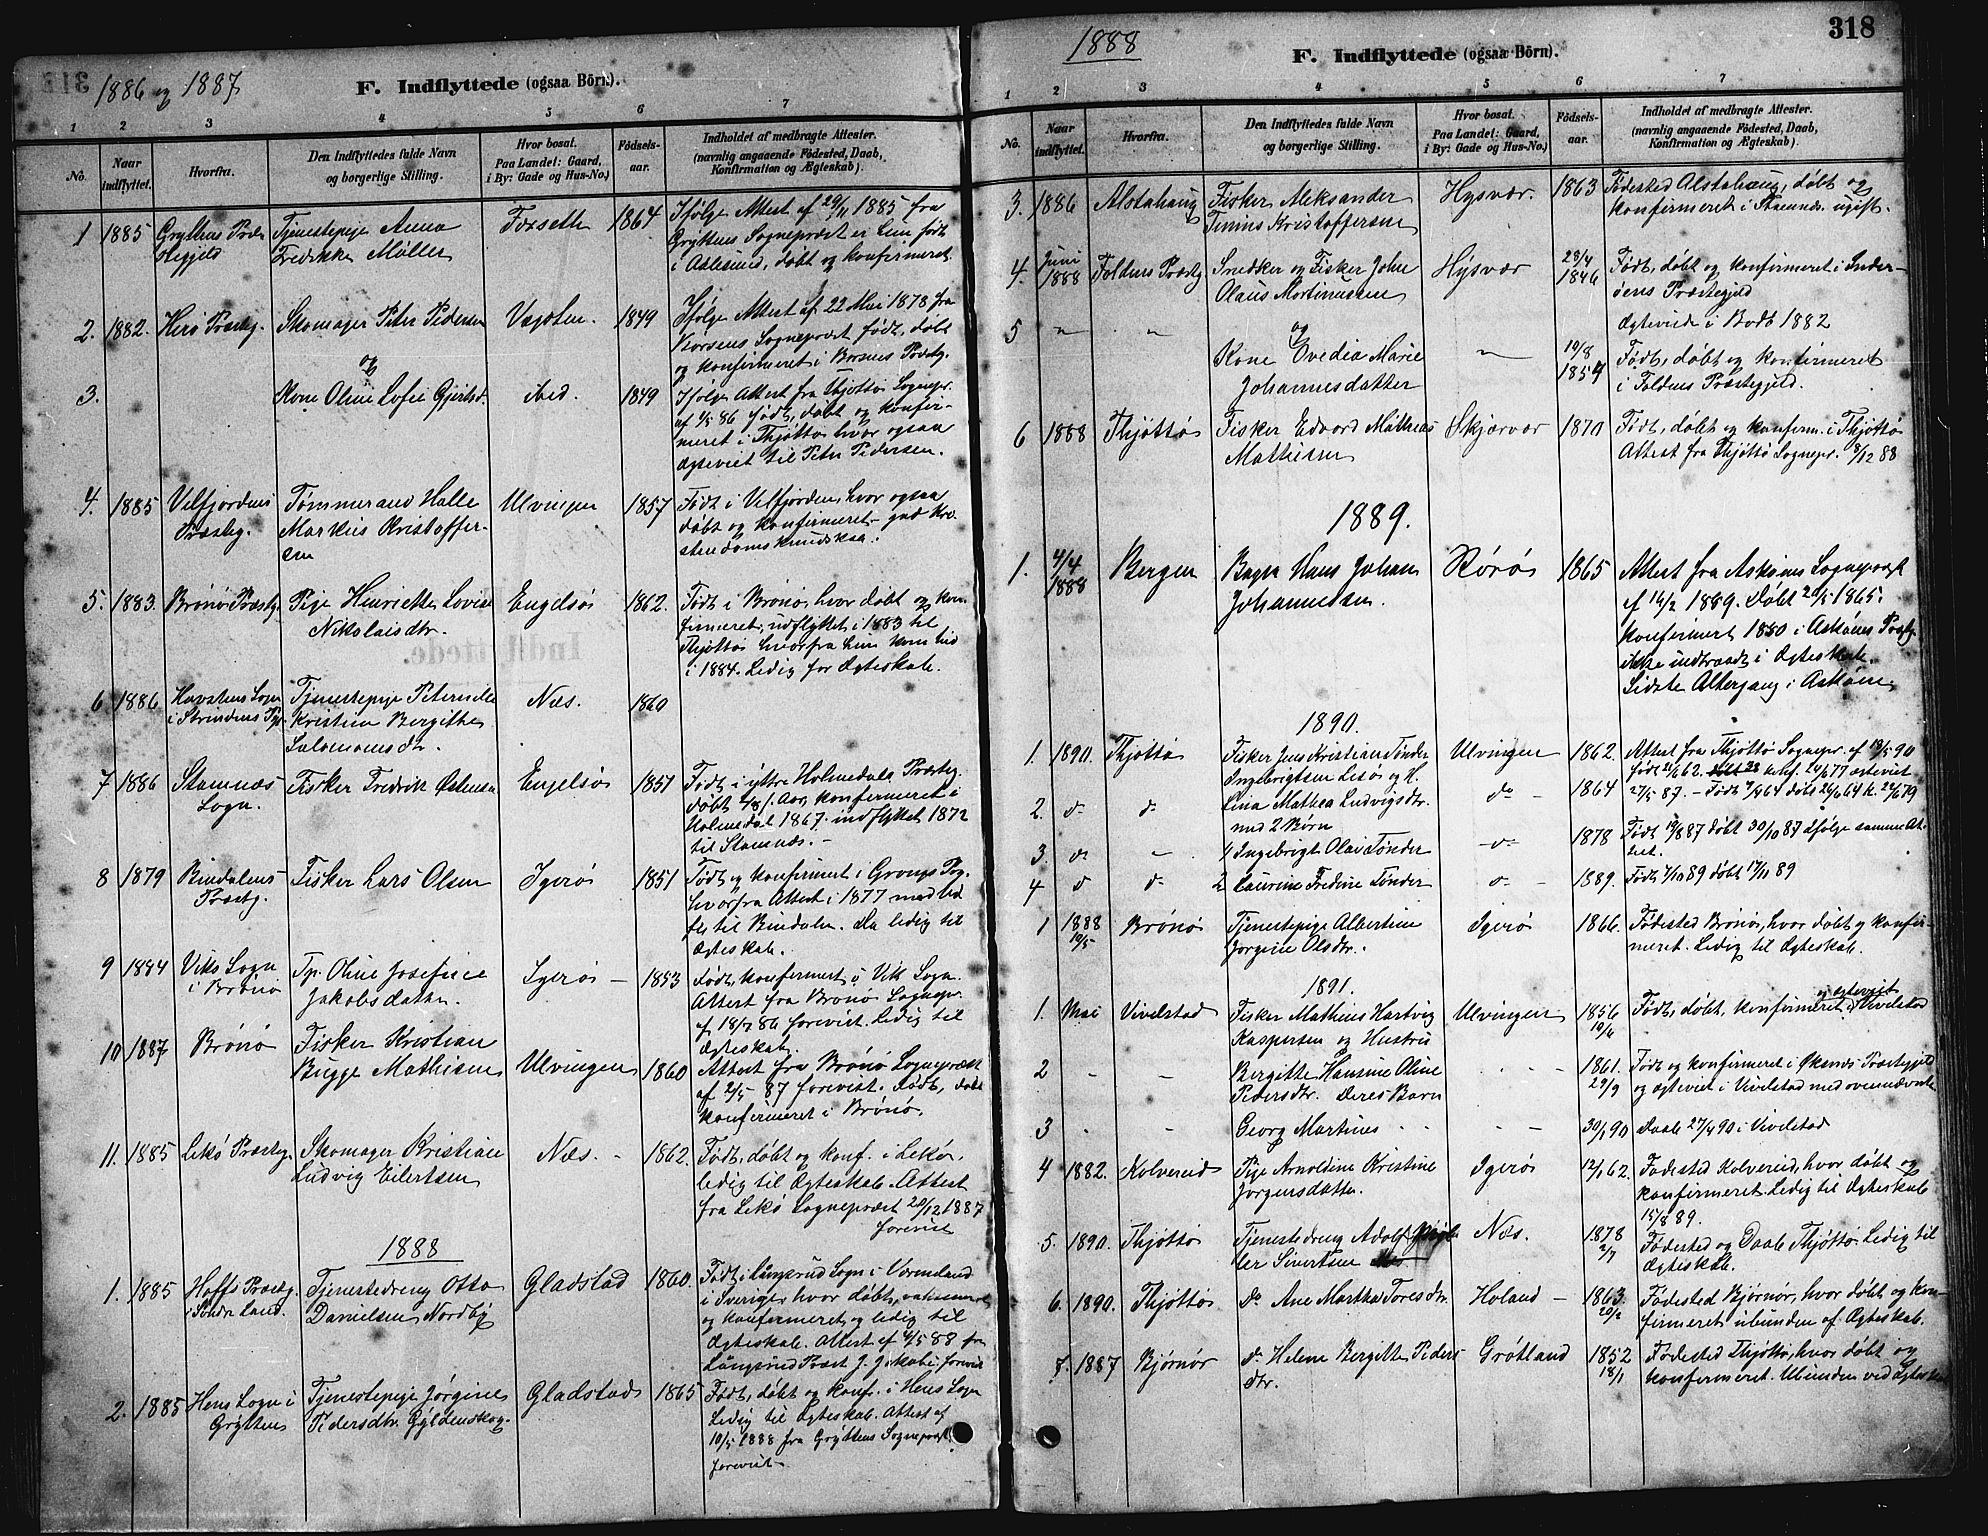 1886 og 1887
F. Indflyttede (ogsaa Börn).
1 2 3 4 5 6 7
No.
Naar indflyttet.
Hvorfra.
Den Indflyttedes fulde Navn
og borgerlige Stilling.
Hvor bosat.
Paa Landet: Gaard,
i By: Gade og Hus-No.)
Födsels-
aar.
Indholdet af medbragte Attester.
(navnlig angaaende Födested, Daab,
Konfirmation og Ægteskab).
1 1885 Gryttens Præste- Tjenestepige Anna Forseth 1864 Ifølge Attest af 29/11 1885 fra
Fredrikke Møller Gryttens Sognepræst er hun født
i Aalesund, døbt og konfirmeret
2. 1882. Herø Præstg. Skomager Peter Pedersen Vægsten. 1849 Ifølge Attest af 22 Mai 1878 fra
Korsens Sognepræst født, døbt
og og konfirmeret i Præstg.
3. Kone Oline Sofie Gjertsd. ibid. 1849 Ifølge Attest fra Thjøttø Sognepr.
af 1/5 86 født, døbt og konfir-
meret i Thjøttø hvor ogsaa
ægteviet til Peter Pedersen.
4. 1885 Velfjordens Tømmermand Halle Ulvingen 1857 Født i Velfjorden, hvor ogsaa
Præstg. Markus Kristoffer- døbt og konfirmeret. god Kri-
sen stendomskundskab.
5. 1883. Brønø Præstg. Pige Henriette Lovise Engelsø 1862. Født i Brønø, hvor døbt og kon-
Nikolaisdtr. firmeret, udflyttet i 1883 til
Thjøttø hvorfra hun kom hid
i 1884. Ledig for Ægteskab.
6 1886 Havstens Sogn Tjenestepige Peternille Næs. 1860
i Strindens Pgj. Kristine Bergithe
Salomonsdtr.
7 1886 Stamnæs Fisker Fredrik Østensen Engelsø 1851 Født i yttre Holmedals Præstg.
Sogn. døbt 2/8 s. Aar, konfirmeret i
Holmedal 1867. indflyttet 1872
til Stamnæs. -
8 1879 Bindalens Fisker Lars Olsen Igerø 1851 Født og konfirmert i Grongs Pg.
Præstg. hvorfra Attest i 1877 med
til Bindalen. Da ledig til
Ægteskab.
9 1884 Viks Sogn Tp. Oline Josefine Igerø - 1853 Født, konfirmert i Vik Sogn.
i Brønø Jakobsdatter. Attest fra Brønø Sognepr.
af 18/7 86 forevist. Ledig til
Ægteskab.
10 1887 Brønø Fisker Kristian Ulvingen 1860 Attest fra Brønø Sognepræst
Bugge Mathisen af 2/5 87 forevist. Født, døbt
konfirmeret i Brønø.
11. 1885 Lekø Præstg. Skomager Kristian Næs. - 1862. Født, døbt og konf. i Lekø.
Ludvig Eilertsen ledig til Ægteskab. Attest
fra Lekø Sognepræst 20/12 1887
forevist
1888
1. 1885 Hoffs Præstg. Tjenestedreng Otto Gladstad 1860. Født i Långsrud Sogn i Vermland
Søndre Land. Danielsen Nordby i Sverige, hvor døbt, vaksineret
og konfirmeret, og ledig til
Ægteskab. Attest af 4/5 88 fra
Långsrud Præst J. Jakobi forevist
2. 1885 Hens Sogn i Tjenestepige Jørgine Gladstad 1865 Født, døbt og konf. i Hens Sogn
Grytten Pedersdtr. Gyldenskog. Ledig til Ægteskab. Attest af
10/5 1888 fra Gryttens Sognepræst
forevist
318
1888
F. Indflyttede (ogsaa Börn).
1 2 3 4 5 6 7
No.
Naar indflyttet.
Hvorfra.
Den Indflyttedes fulde Navn
og borgerlige Stilling.
Hvor bosat.
Paa Landet: Gaard,
i By: Gade og Hus-No.)
Födsels-
aar.
Indholdet af medbragte Attester.
(navnlig angaaende Födested, Daab,
Konfirmation og Ægteskab).
3. 1886 Alstahaug Fisker Aleksander Hysvær. 1863 Fødested Alstahaug, døbt og
Kristoffersen konfirmeret i Stamnæs. ugift.
4. Juni 1888 Foldens Præstg Snedker og Fisker Johan Hysvær 28/4 1846 Født, døbt og konfirmeret i Inder-
Olaus Mortinussen øens Præstegjeld
Ægteviede i Bodø 1882
5 " " og
Kone Ovedia Marie " 10/8 1854 Født, døbt og konfirmeret
Johannesdatter i Foldens Præstegjeld.
6 1888 Thjøttø Fisker Edvard Mathias Skjærvær 1870 Født, døbt og konfirm. i Thjøttø
Mathisen Attest fra Thjøttø Sognepr. 3/12 88
1889.
1. 4/4 1888 Bergen Bager Hans Johan Rørø 1865 Attest fra Askøens Sognepræst
Johannesen. af 14/2 1889. Døbt 21/5 1865.
Konfirmert 1880 i Askøens Præstg.
ikke indtraadt i Ægteskab.
Sidste Altergang i Askøen.
1890.
1. 1890. Thjøttø Fisker Jens Kristian Tønder Ulvingen 1862. Attest fra Thjøttø Sognepr. af 19/5 90
Ingebrigtsen Lesø og K. født 21/6 62. konf. 24/6 77 ægteviet
2. do do Lina Mathea Ludvigsdtr. do - 1864 27/5 87. - Født 9/4 64 døbt 26/6 64 k. 22/6 79
med 2 Børn
3. do - 1 Ingebrigt Olai Tønder - do - 1878 Født 19/8 87 døbt 30/10 87 ifølge samme At-
test.
4 d do 2 Laurine Fredine Tønder d - 1889. Født 7/10 89 døbt 17/11 89
1 1888 19/5 Brønø Tjenestepige Albertine Igerø 1866. Fødested Brønø, hvor døbt og konfir-
Jørgine Olsdtr. meret. Ledig til Ægteskab.
1891.
1. Mai Vivelstad Fisker Mathias Hartvig Ulvingen 1856 Født, døbt, konfirmeret og ægteviet i Vivelstad
Kaspersen og Hustru 10/4
2 - - Bergitte Hansine Oline - - 1861. Født og konfirmeret i Øksnes Præstegjeld
Pedersdtr. Deres Barn 29/9 og ægteviet i Vivelstad med ovennævnte
3 - - Georg Martines - - 30/1 90 Daab 27/4 90 i Vivelstad
4 1882. Kolvereid Pige Arnoldine Kristine Igerø 12/1 62. Fødested Kolvereid, hvor døbt og
Jørgensdatter. konfirmeret. Ledig til Ægteskab
15/8 89.
5. 1890. Thjøttø Tjenestedreng Adolf Næs. 1878 Fødested og Daab Thjøttø. Ledig til
Sivertsen 2/7 Ægteskab.
6. 1890. Thjøttø Do Ane Martha Toresdtr. Holand - 1863. Fødested Bjørnør, hvor døbt og kon-
20/2 firmeret ubunden af Ægteskab.
7. 1887 Bjørnør do Helene Bergitte Peders Grøtland 1852 Fødested Thjøttø, hvor døbt og
dtr. 18/1 konfirmeret. Ubunden ved Ægteskab